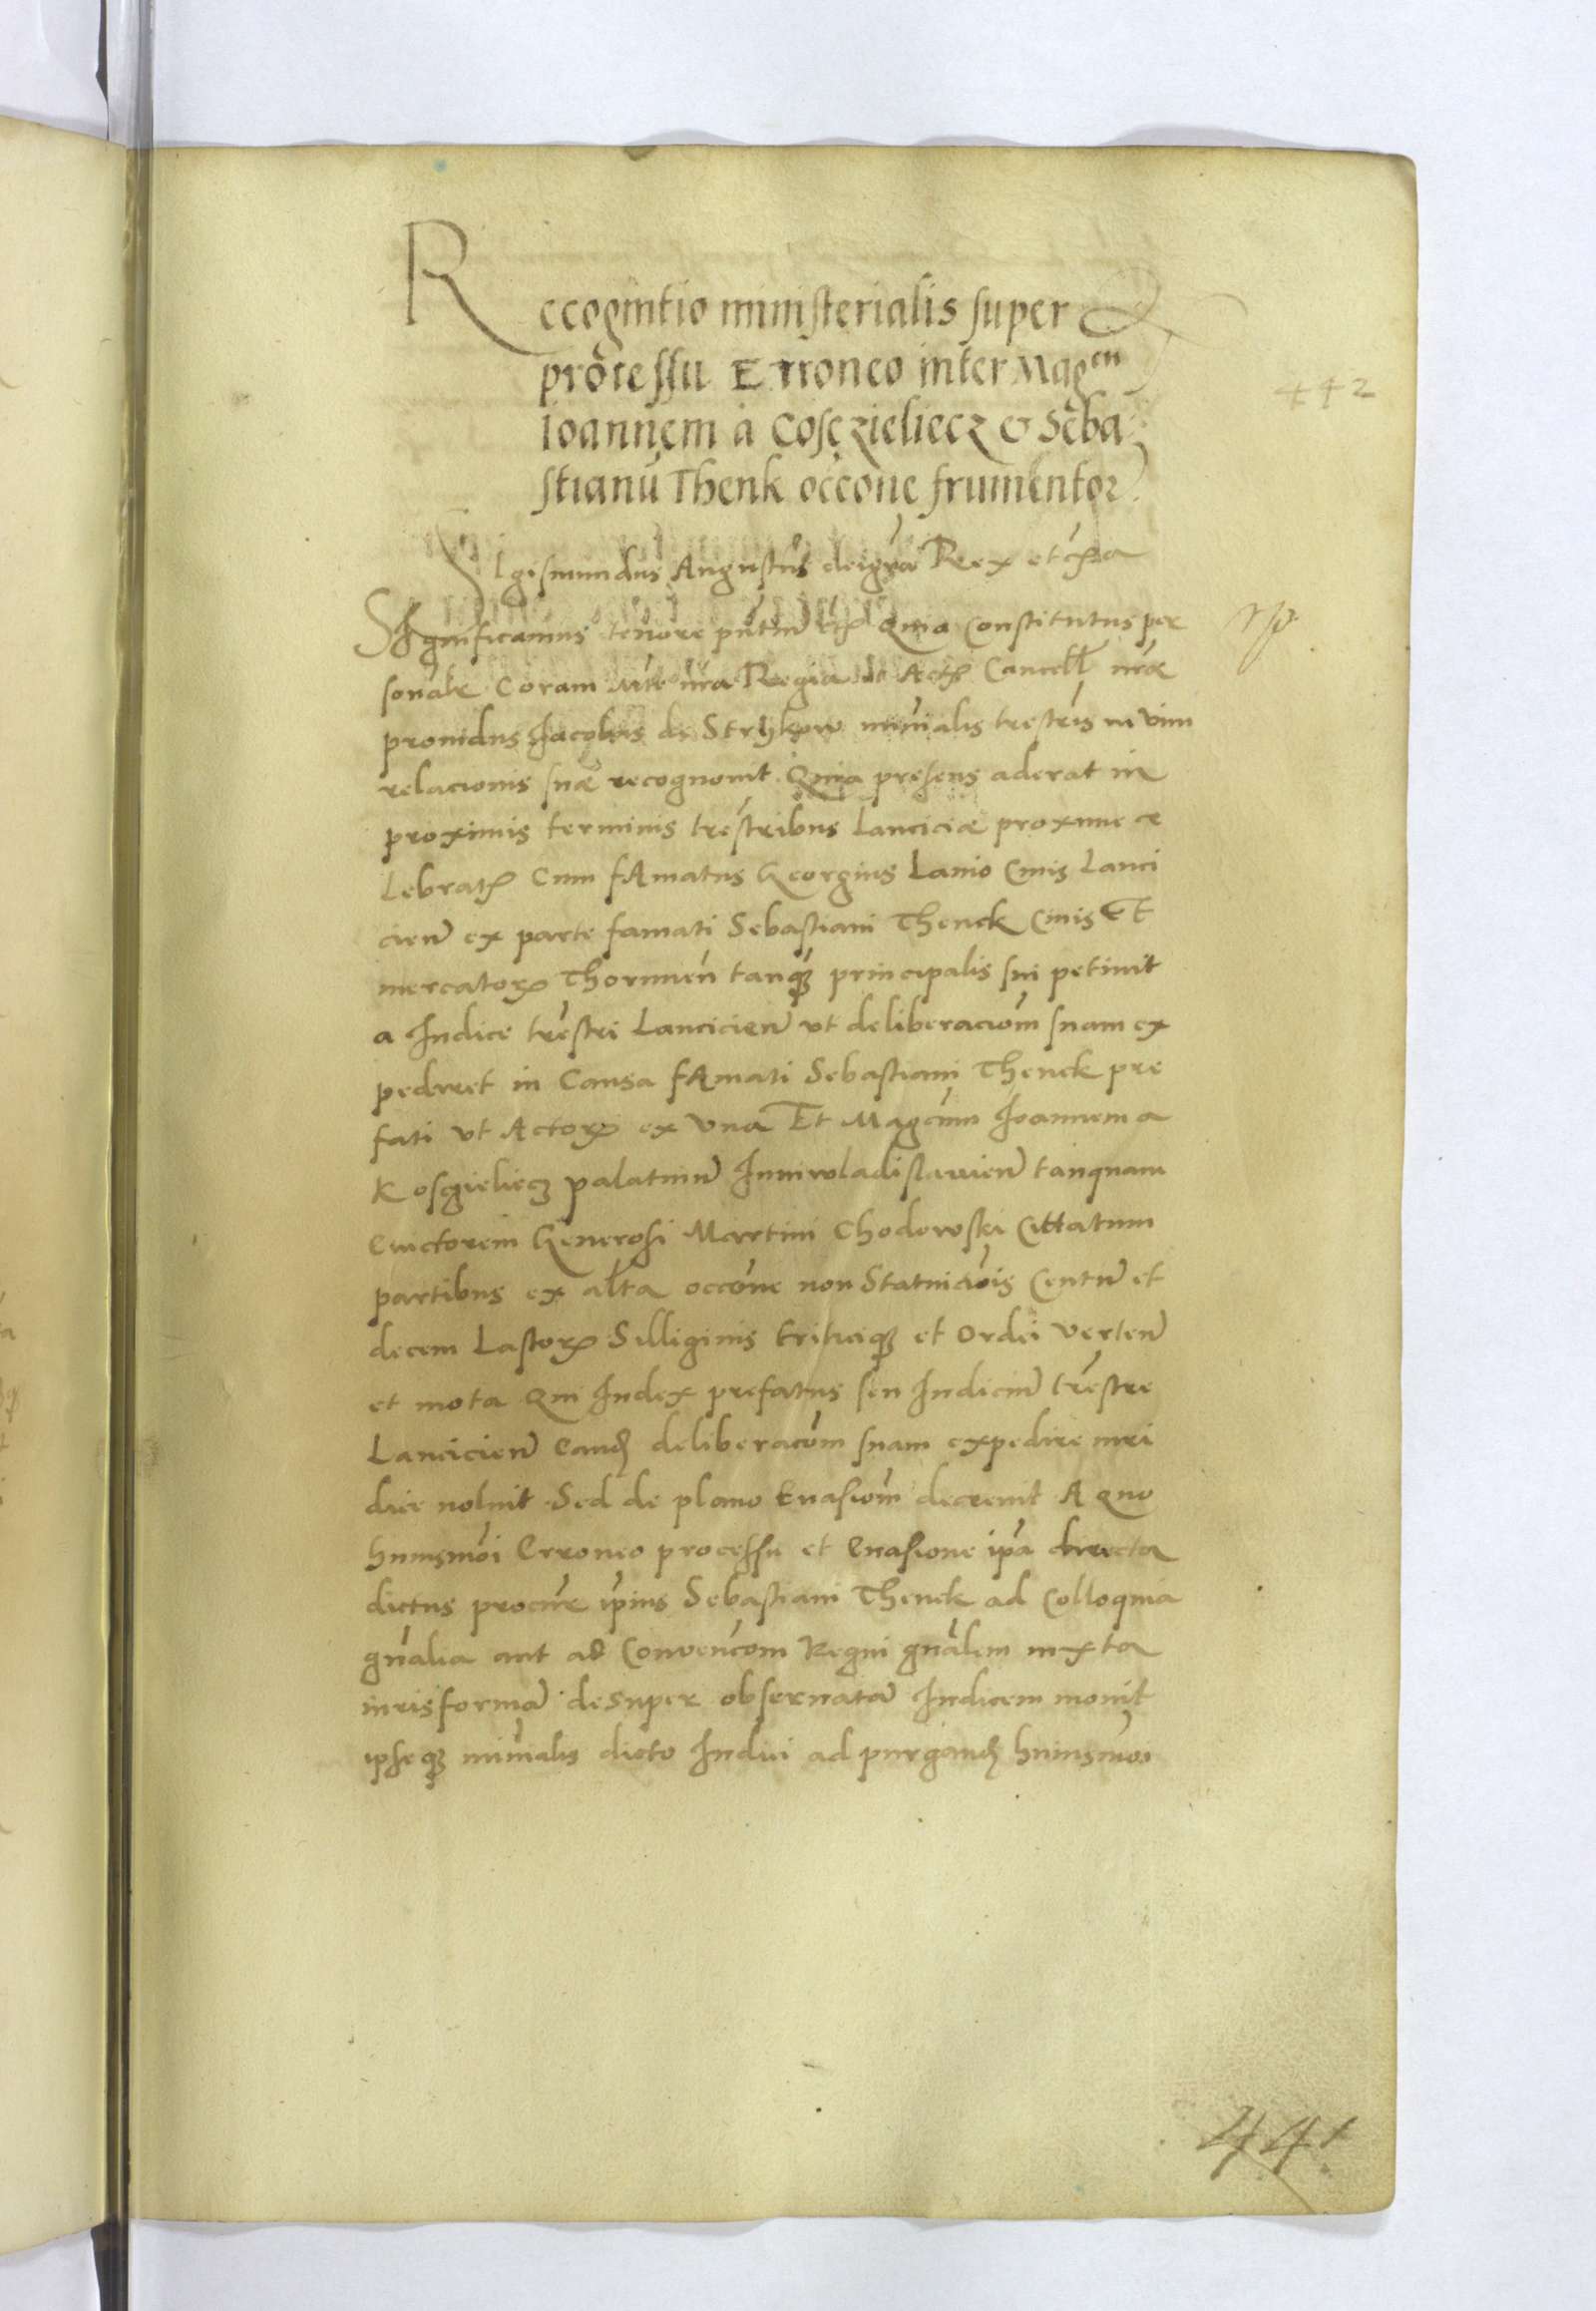 Recognitio ministerialis super
processu Erroneo inter Magcu
Ioannem à Cosczieliecz & Seba
stianū Thenk occōne frumentor
442
SIgismundus Augustus dei gr̄a Rex etc̄
SIgnificamus tenore pn̄tiū etc̄ Quia Constitutus per
sonalr̄ Coram Mte n̄ra Regia et Actꝭ Cancell n̄ræ
prouidus Jacobus de Strÿkow min̄ialis tr̄estris in vim
relacionis suæ recognouit Quia presens aderat in
proximis terminis tr̄estribus Lanciciæ proxime ce
lebratꝭ Cum fAmatus Georgius Lanio Ciuis Lanci
cieñ ex parte famati Sebastiani Thenck Ciuis Et
mercatorꝭ Thorunieñ tanqꝫ principalis sui petiuit
a Iudice tr̄estri Lancicieñ vt deliberaciom̄ suam ex
pediret in Causa fAmati Sebastiani Thenck pre
fati vt Actorꝭ ex vna Et Magcum Joannem a
Kosczieliecz palatinū Juniwladislauieñ tanquam
Euictorem Generosi Martini Chodowski Cittatum
partibus ex alt̄a occōne non Statuic̄ois Centū et
decem Lastorꝝ Silliginis triticiqꝫ et Ordei verteñ
et mota Qui Iudex prefatus seu Iudiciū tr̄estre
Lancicieñ Eandꝫ deliberac̄om suam expedire iuri
dice noluit Sed de plano Euasiom̄ decreuit A quo
huiusm̄oi Erroneo processu et Euasione ip̄a directa
dictus procur̄ ip̄ius Sebastiani Thenck ad Colloquia
gn̄alia aut ad Conuenc̄om Regni gn̄alem iuxta
iuris formā desuper obseruatā Iudicem mouit
ipseqꝫ min̄ialis dicto Iudici ad purgandꝫ huiusm̄oi
441